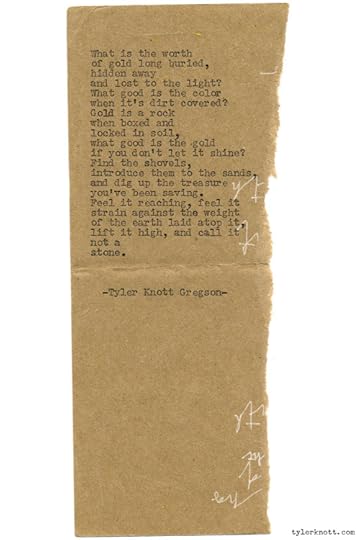 What is the worth
of gold long buried,
hidden away
and lost to the light?
What good is the color
when it's dirt covered?
Gold is a rock
when boxed and
locked in soil,
what good is the gold
if you don't let it shine?
Find the shovels,
introduce them to the sands,
and dig up the treasure
you've been saving.
Feel it reaching, feel it
strain against the weight
of the earth laid atop it,
lift it high, and call it
not a
stone.
-Tyler Knott Gregson-
tylerknott.com